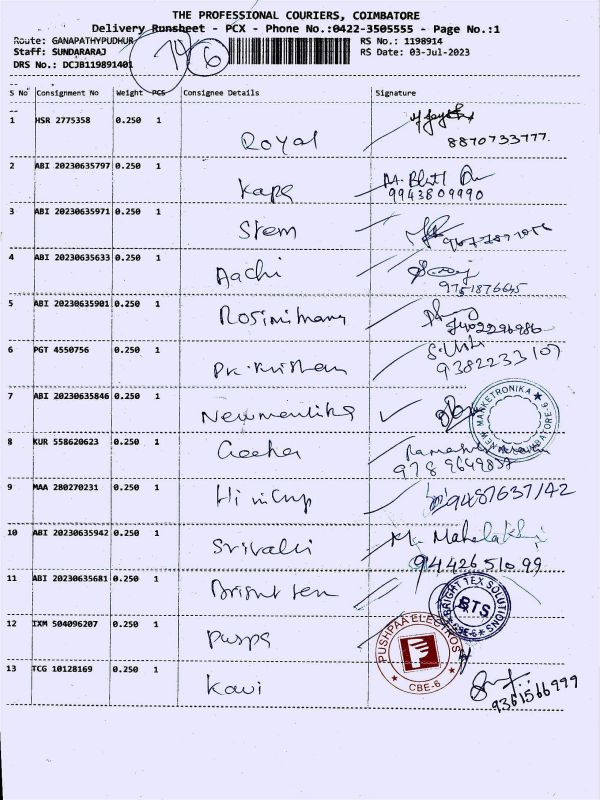 THE PROFESSIONAL COURIERS, COIMBATORE
Delivery Runsheet - PCX - Phone No.:0422-3505555 - Page No.:1
Route: GANAPATHYPUDHUR RS No.: 1198914
Staff: SUNDARARAJ RS Date: 03-Jul-2023
DRS No.: DCJB119891401
S No Consignment No Weight PCS Consignee Details Signature
1 HSR 2775358 0.250 1 Royal
8870733777.
2 ABI 20230635797 0.250 1 Kapa
9943809990
3 ABI 20230635971 0.250 1 Stem
4 ABI 20230635633 0.250 1 Aachi
9751876645
5 ABI 20230635901 0.250 1
6 PGT 4550756 0.250 1
9382233107
7 ABI 20230635846 0.250 1
NEW MARKETRONIKA
8 KUR 558620623 0.250 1
9789649837
9 MAA 280270231 0.250 1
9487637142
10 ABI 20230635942 0.250 1 Srivalli
9442651099
11 ABI 20230635681 0.250 1
BRIGHT TEX SOLUTIONS
BTS
CBE-6
12 IXM 504096207 0.250 1 Puspa
PUSHPAA ELECTROS
CBE-6
13 TCG 10128169 0.250 1 Kavi
9361566999